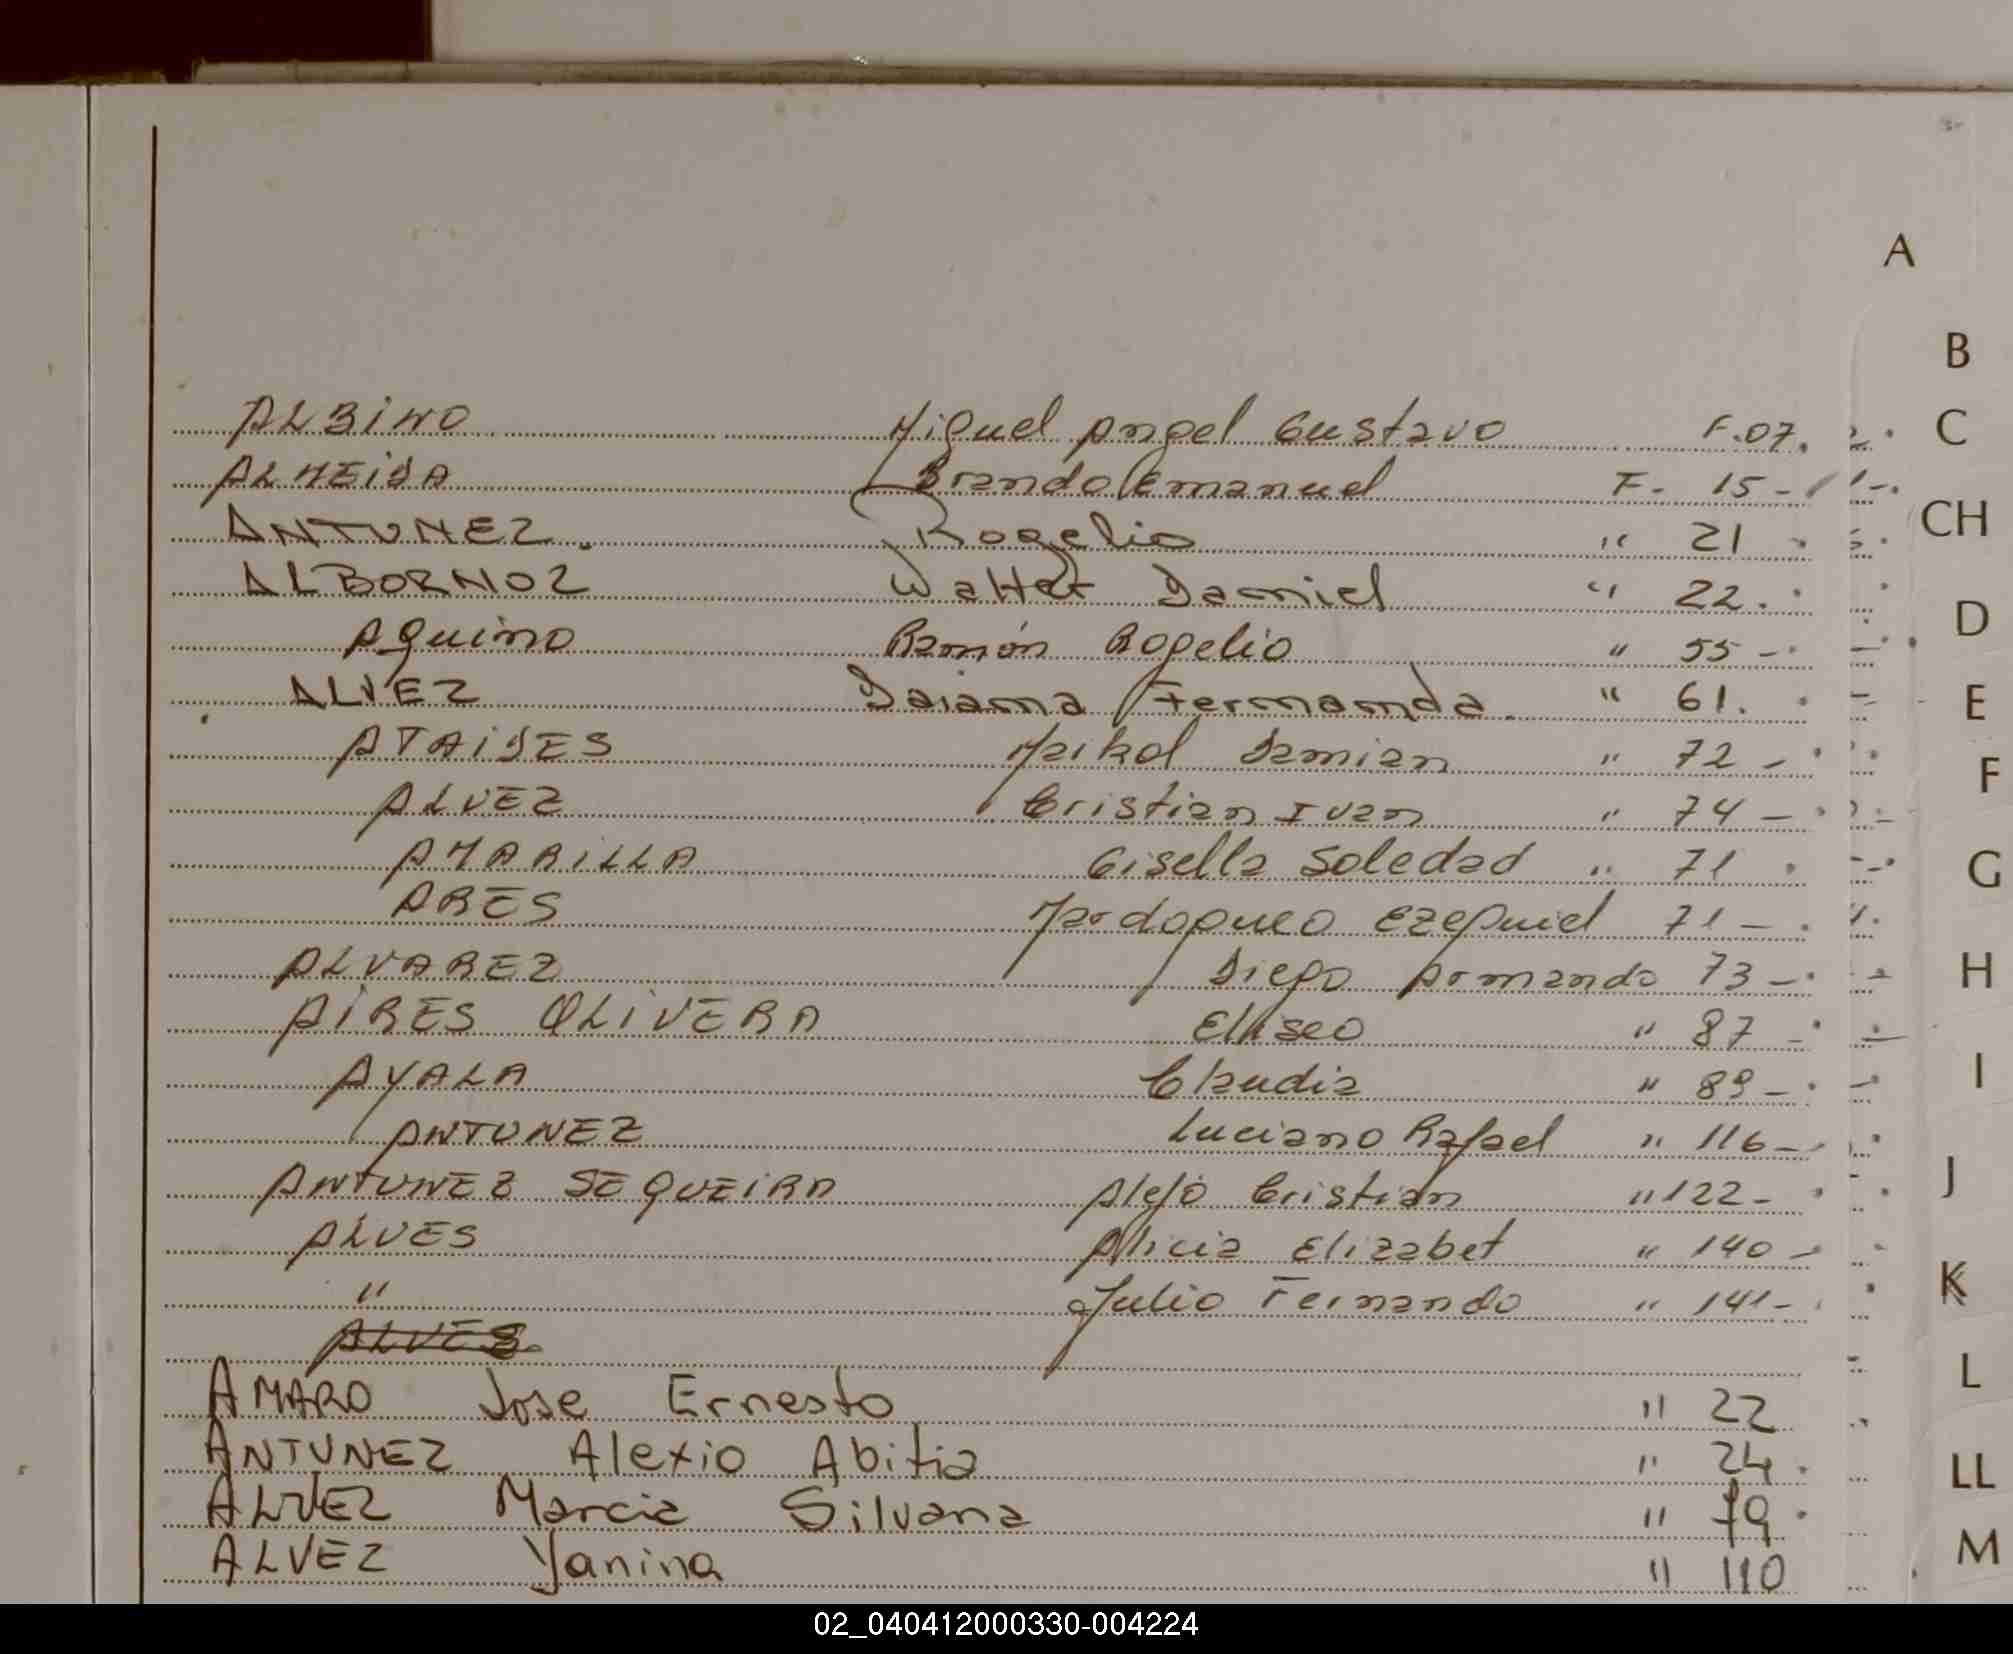 A
B
ALBINO Miguel Angel Gustavo F.07.
C
ALMEIDA Brando Emanuel F. 15 -
ANTUNEZ. Rogelio " 21
CH
ALBORNOZ Walter Daniel " 22.
D
Aquino Ramón Rogelio " 55 -
ALVEZ Daiana Fernanda. " 61.
E
ATAIDES Maikol Damian " 72 -
F
ALVEZ Cristian Ivan " 74 -
AMARILLA Gisella Soledad " 71
G
ARES Mardoqueo Ezequiel 71 -
ALVAREZ Diego Armando 73 -
H
AIRES OLIVERA Eliseo " 87 -
AYALA Claudia " 89 -
I
ANTUNEZ Luciano Rafael " 116 -
ANTUNEZ SEQUEIRA Alejo Cristian " 122 -
J
ALVES Alicia Elizabet " 140 -
" Julio Fernando " 141 -
K
ALVES
L
AMARO Jose Ernesto " 22
ANTUNEZ Alexio Abitia " 24.
LL
ALVEZ Marcia Silvana " 79
ALVEZ Yanina " 110
M
02_040412000330-004224